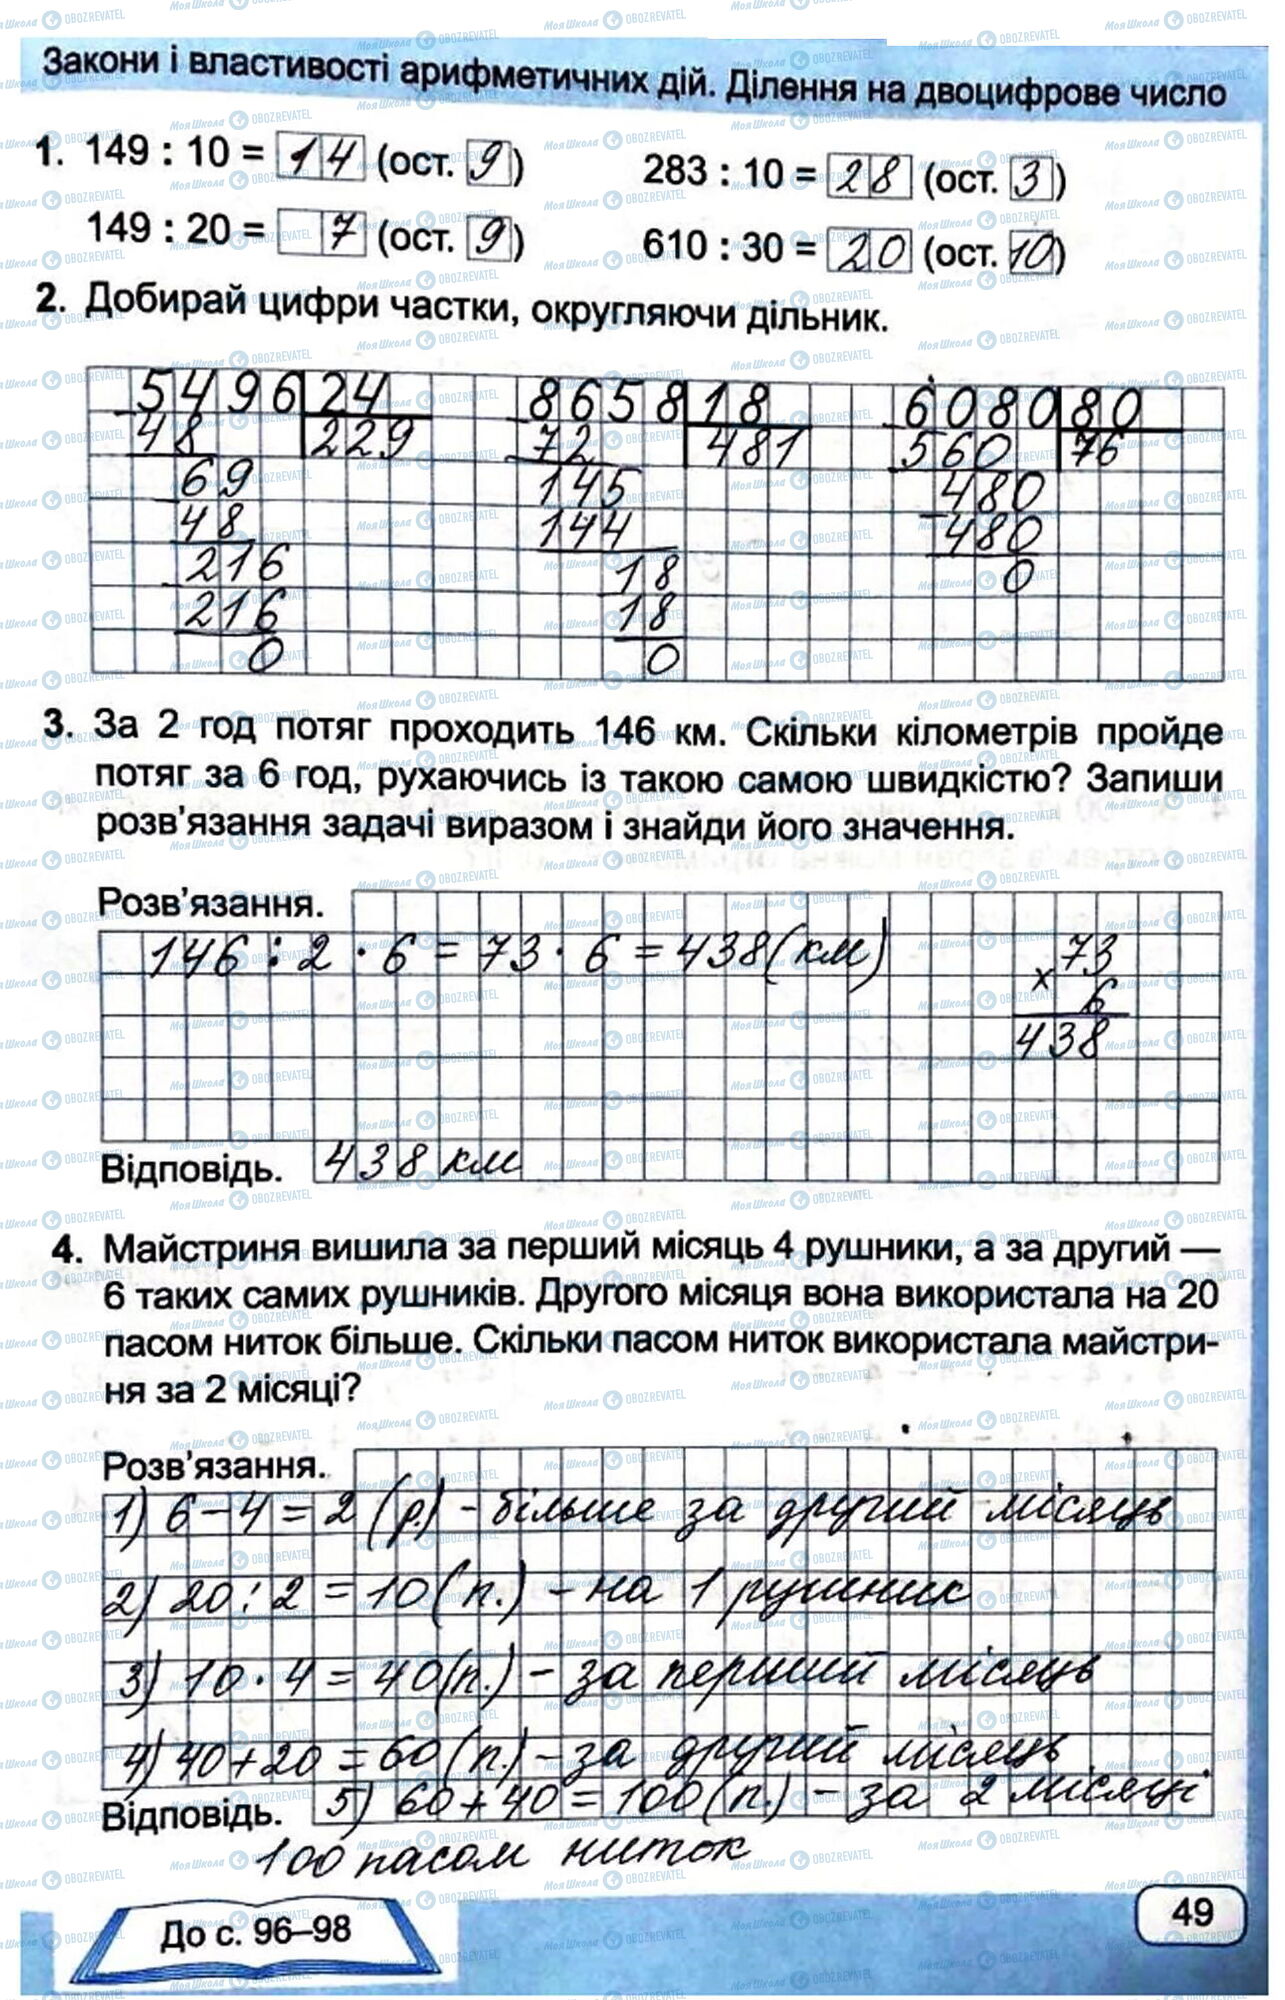 Закони і властивості арифметичних дій. Ділення на двоцифрове число
1. 149 : 10 = 14 (ост. 9) 283 : 10 = 28 (ост. 3)
149 : 20 = 7 (ост. 9) 610 : 30 = 20 (ост. 10)
2. Добирай цифри частки, округляючи дільник.
5496 24 8658 18 6080 80
48 229 72 481 560 76
69 145 480
48 144 480
216 18 0
216 18
0 0
3. За 2 год потяг проходить 146 км. Скільки кілометрів пройде
потяг за 6 год, рухаючись із такою самою швидкістю? Запиши
розв'язання задачі виразом і знайди його значення.
Розв'язання.
146 : 2 · 6 = 73 · 6 = 438 (км) 73
× 6
438
Відповідь. 438 км
4. Майстриня вишила за перший місяць 4 рушники, а за другий —
6 таких самих рушників. Другого місяця вона використала на 20
пасом ниток більше. Скільки пасом ниток використала майстри-
ня за 2 місяці?
Розв'язання.
1) 6 – 4 = 2 (р.) – більше за другий місяць
2) 20 : 2 = 10 (п.) – на 1 рушник
3) 10 · 4 = 40 (п.) – за перший місяць
4) 40 + 20 = 60 (п.) – за другий місяць.
Відповідь. 5) 60 + 40 = 100 (п.) – за 2 місяці
100 пасом ниток
До с. 96–98
49
МояШкола OBOZREVATEL